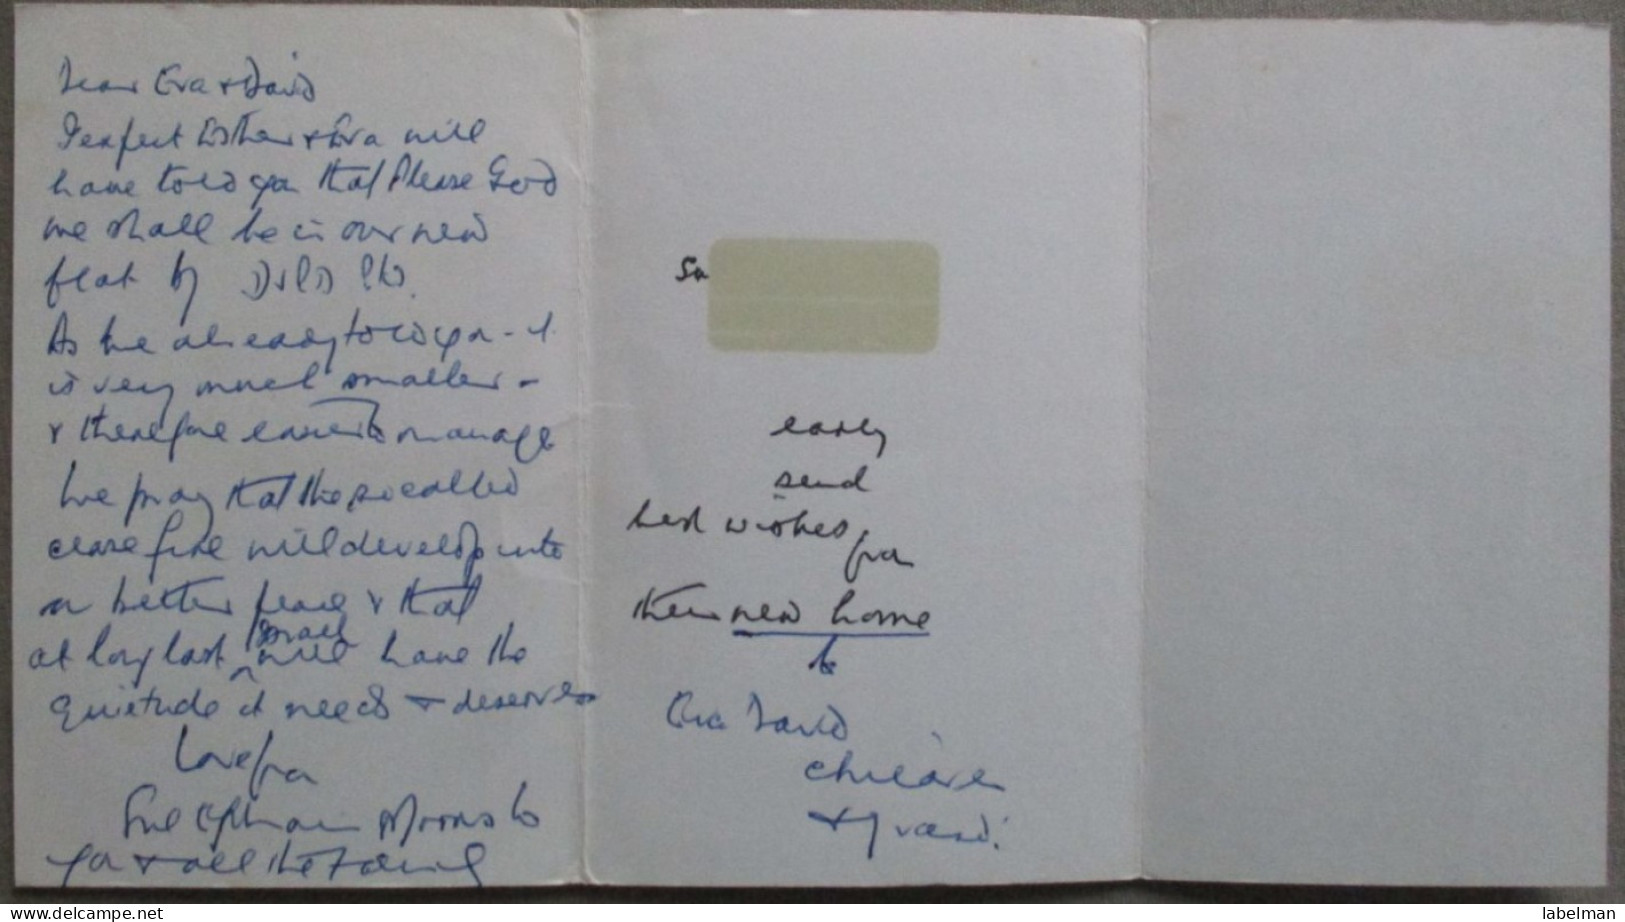 Dear Eva & David
Perfect Esther & Eva will
have told you that Please God
we shall be in our new
flat by
As we already told you - it
is very much smaller -
& therefore easier to manage
We pray that the so called
cease fire will develop into
a better peace & that
at long last Israel will have the
quietude it needs & deserves
Love from
Sue Ephraim
you & all the family
Su
early
send
best wishes
from
their new home
to
Eva David
children
&
labelman
www.delcampe.net